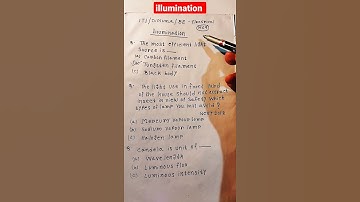 illumination
ITI/Diploma/BE-Electrical
MCQ
Illumination
Q. The most efficient light
source is
(a) Carbon filament
(b) Tungsten filament
(c) Black body
Q. The light use in front
of the house should not attract
insect in view of safety which
types of lamp you will avoid?
(a) Mercury vapour lamp
(b) Sodium vapour lamp
(c) Halogen lamp
Q. Candela is unit of
(a) Wavelength
(b) Luminous flux
(c) Luminous intensity